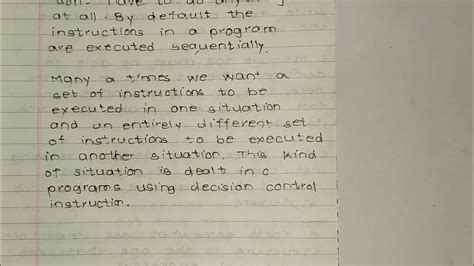 have to do anything
at all. By default the
instructions in a program
are executed sequentially.
Many a times we want a
set of instructions to be
executed in one situation
and an entirely different set
of instructions to be executed
in another situation. This kind
of situation is dealt in c
programs using decision control
instruction.